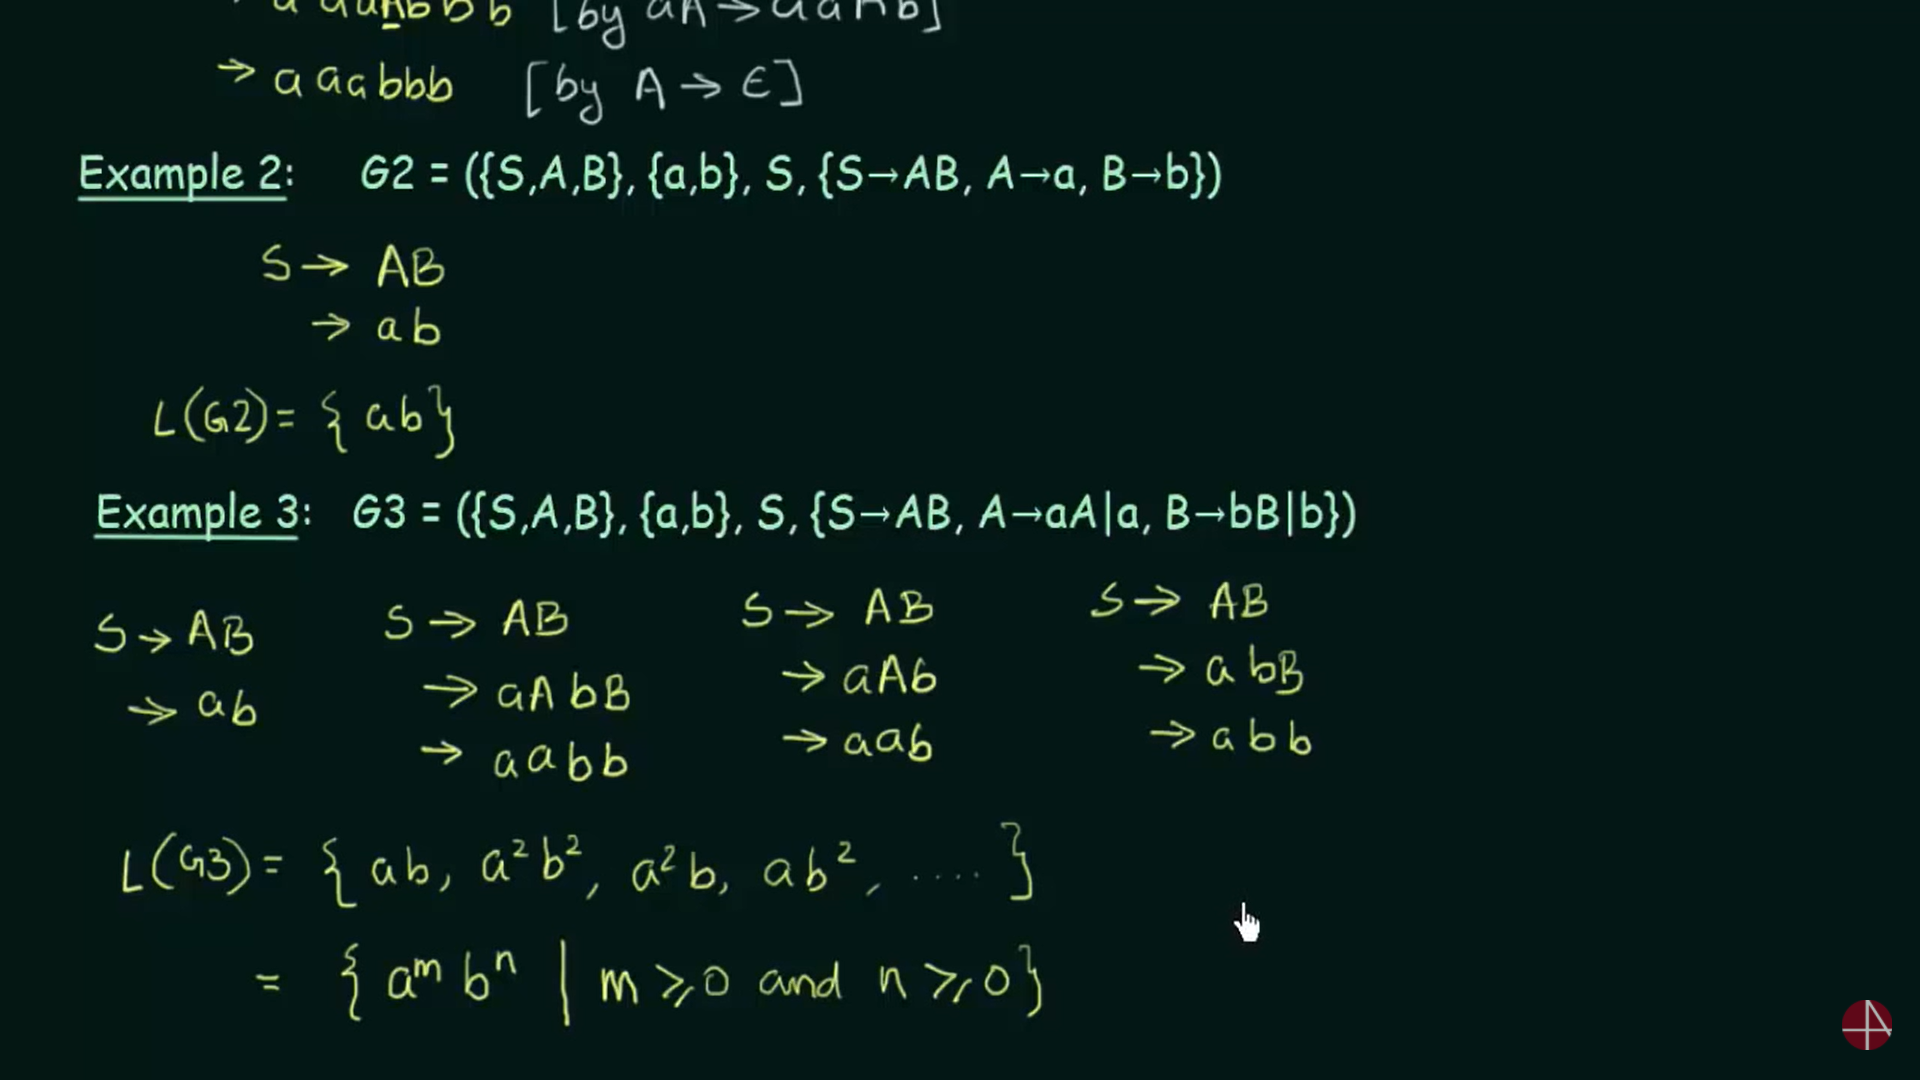 → a aaAbbb b [by aA → aaAb]
→ aaabbb [by A → ϵ]
Example 2: G2 = ({S,A,B}, {a,b}, S, {S→AB, A→a, B→b})
S → AB
→ ab
L(G2) = { ab }
Example 3: G3 = ({S,A,B}, {a,b}, S, {S→AB, A→aA|a, B→bB|b})
S → AB S → AB S → AB S → AB
→ ab → aAbB → aAb → abB
→ aabb → aab → abb
L(G3) = { ab, a²b², a²b, ab², .... }
= { aᵐ bⁿ | m ⩾ 0 and n ⩾ 0 }